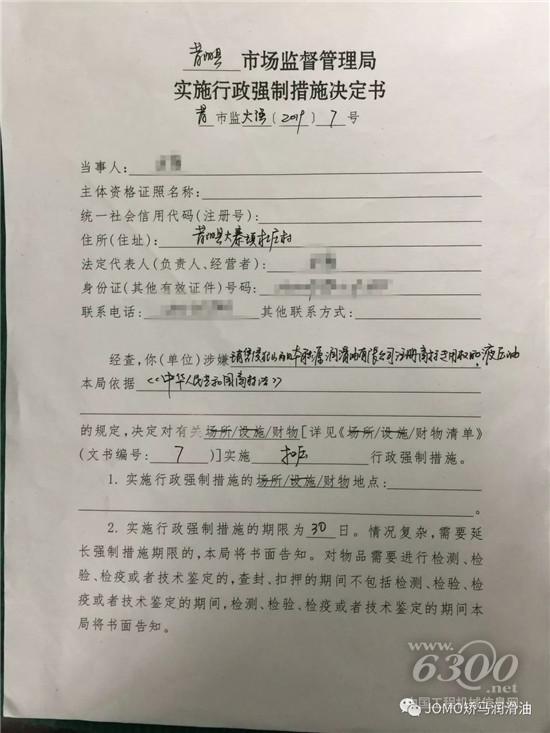 昔阳县 市场监督管理局
实施行政强制措施决定书
昔 市监 大强 〔2019〕 7 号
当事人:
主体资格证照名称:
统一社会信用代码(注册号):
住所(住址): 昔阳县大寨镇杜庄村
法定代表人(负责人、经营者):
身份证(其他有效证件)号码:
联系电话: 其他联系方式:
经查,你(单位)涉嫌 销售侵犯 润滑油有限公司注册商标专用权的液压油
本局依据 《中华人民共和国商标法》
的规定,决定对有关场所/设施/财物[详见《场所/设施/财物清单》
(文书编号: 7 )]实施 扣压 行政强制措施。
1. 实施行政强制措施的场所/设施/财物地点:
。
2. 实施行政强制措施的期限为 30 日。情况复杂,需要延
长强制措施期限的,本局将书面告知。对物品需要进行检测、检
验、检疫或者技术鉴定的,查封、扣押的期间不包括检测、检验、检
疫或者技术鉴定的期间,检测、检验、检疫或者技术鉴定的期间本
局将书面告知。
www.
6300
.net
中国工程机械信息网
JOMO矫马润滑油